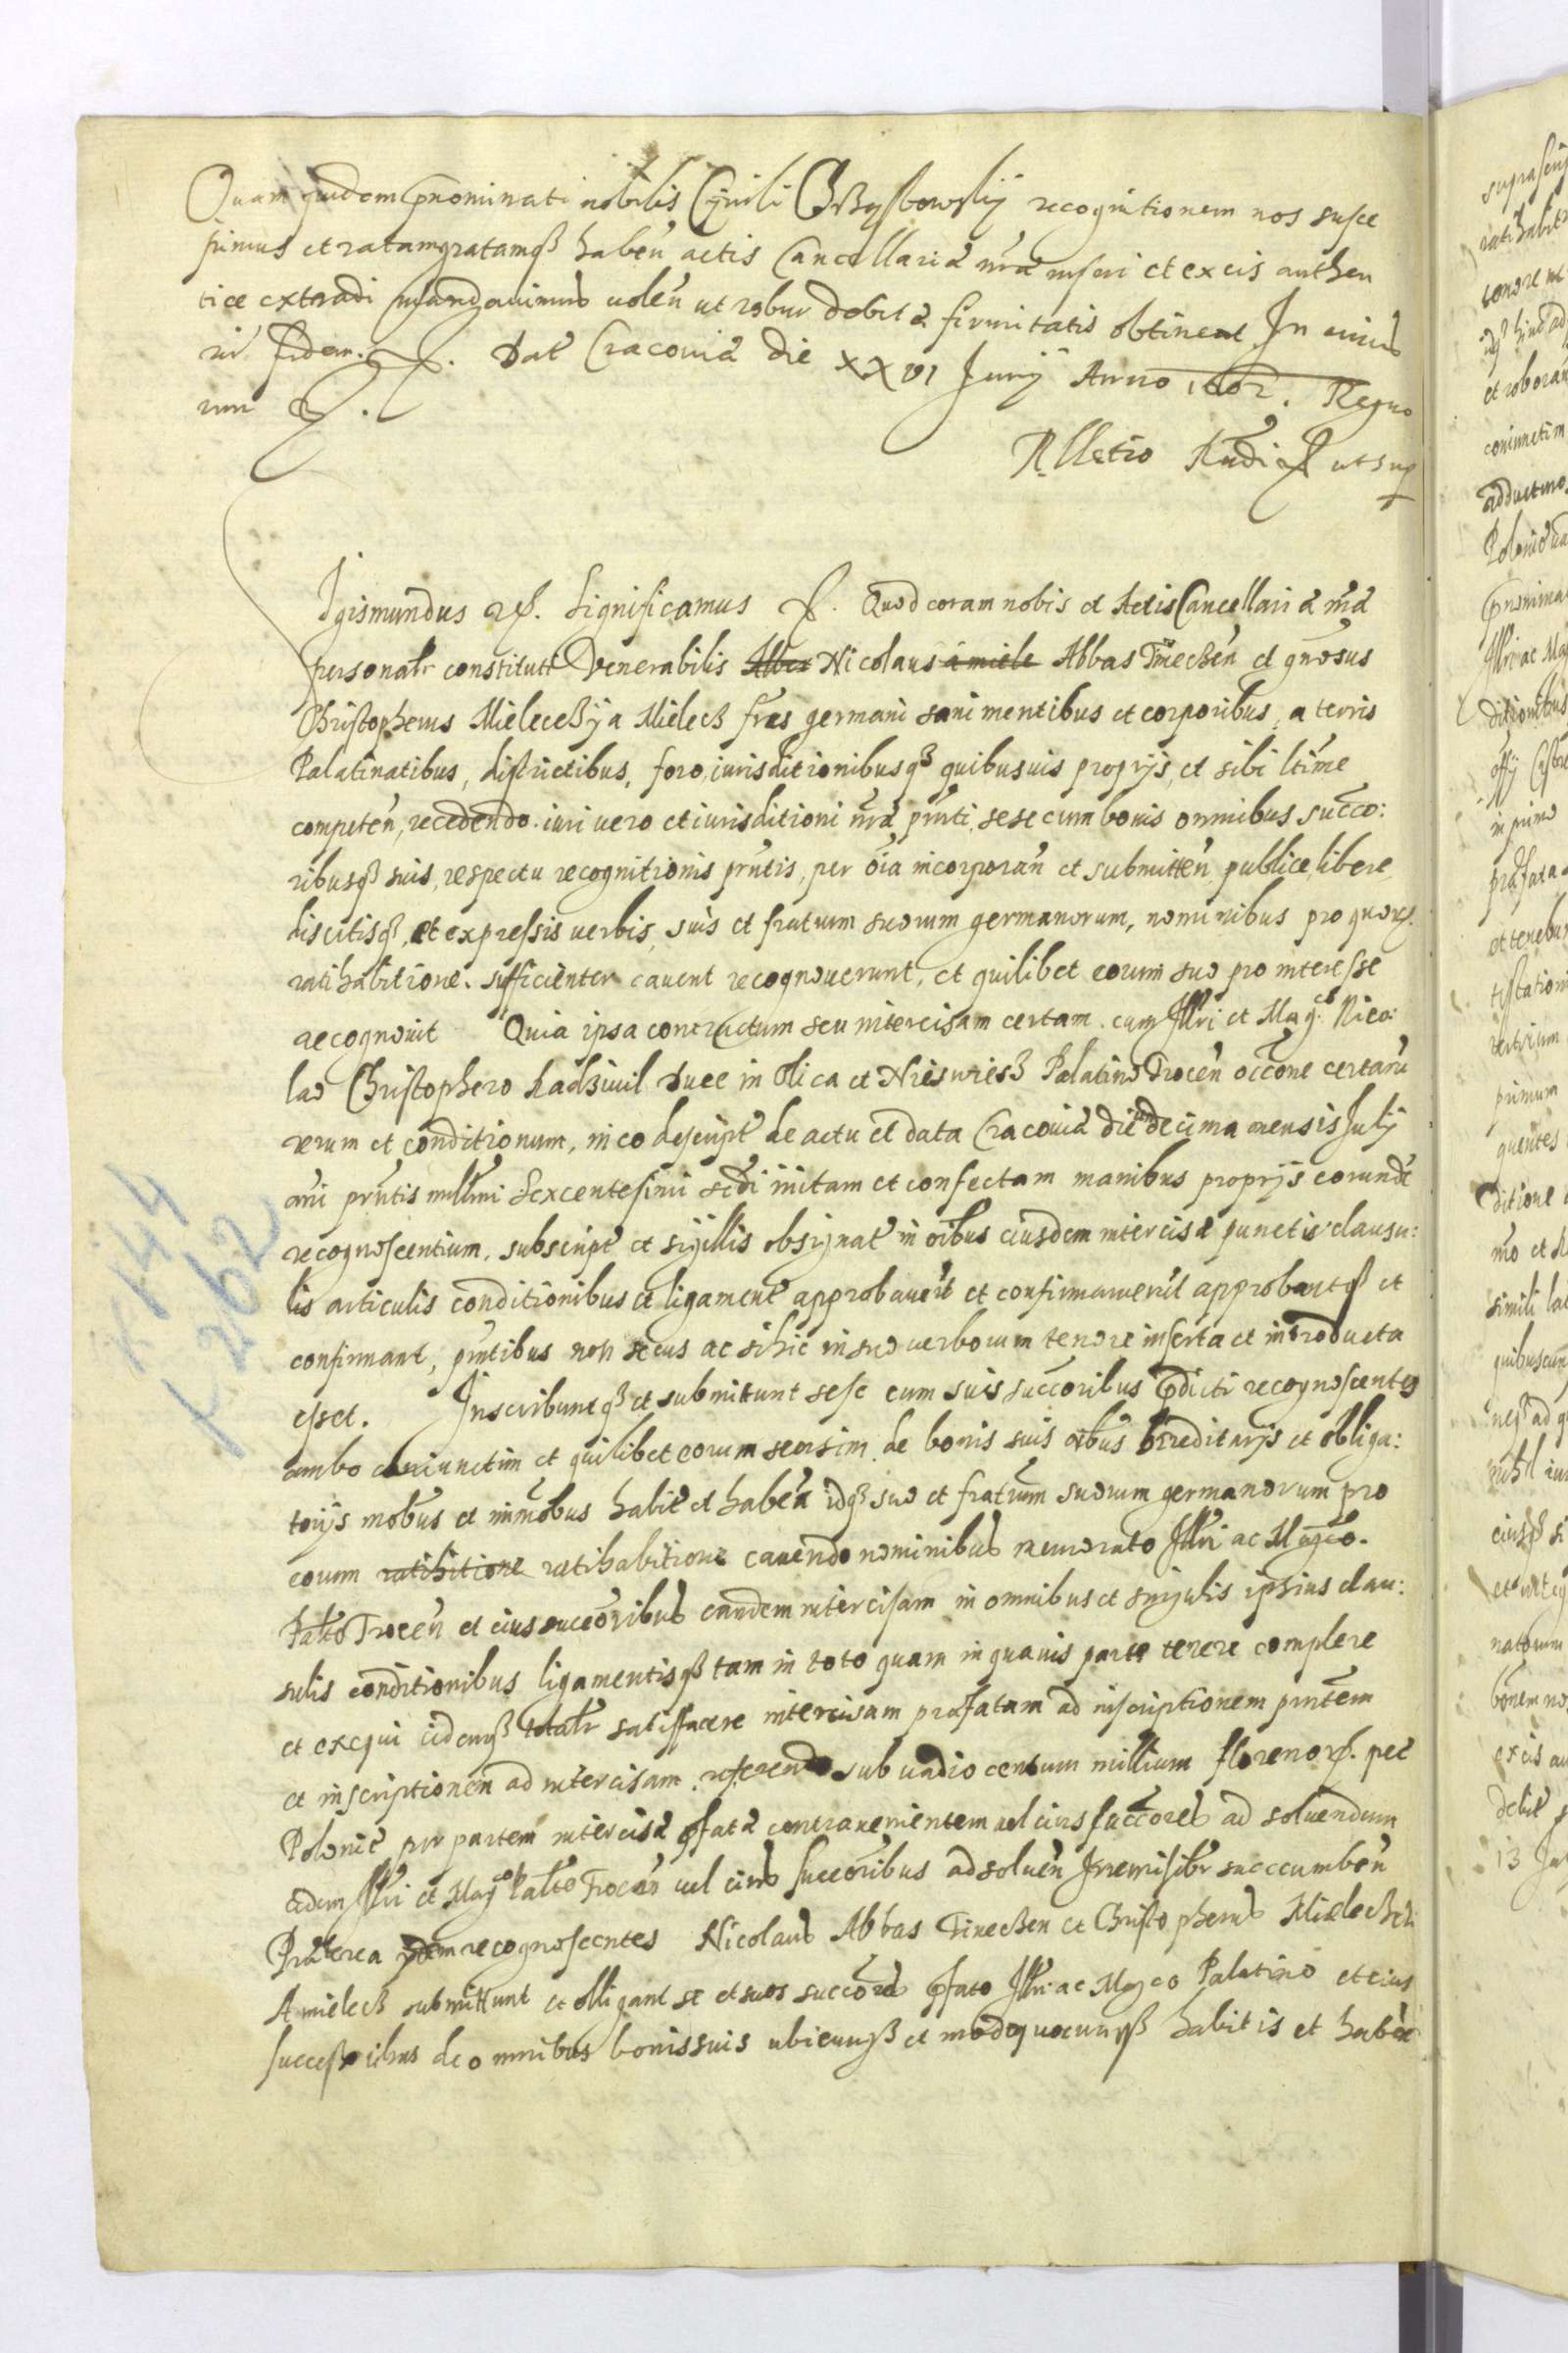 Quam quidem pnominati nobilis recognitionem nos susce
pimus et ratam gratamq haben actis Cancellariæ nræ inseri et ex eis authen
tice extradi mandavimus volen ut robur debitæ firmitatis obtineat In cuius
rei fidem. Dat Cracoviæ die XXVI Junij Anno 1602. Regno
rum
Rlletio ut sup
Igismundus Significamus Quod coram nobis et Actis Cancellariæ nræ
personalr constituti Venerabilis Abbas Nicolaus a miele Abbas Tinecen et gnosus
Christopherus Mieleczky a Mielecz fres germani sani mentibus et corporibus, a terris
Palatinatibus, districtibus, foro, iurisditionibusq quibusuis proprijs, et sibi ltime
competen, recedendo. iuri vero et iurisditioni nræ pnti, sese cum bonis omnibus succo:
ribusq suis, respectu recognitionis pntis, per oia incorporan et submitten, publice, libere,
disertisq, et expressis verbis, suis et fratrum suorum germanorum, nominibus pro quor
ratihabitione. sufficienter cavent recognoverunt, et quilibet eorum suo pro interesse
recognovit Quia ipsa contractum seu intercisam certam. cum Illri et Mag.co Nico:
lao Christophero Radziwil Duce in Olica et Nieswiesz Palatino Trocen occone certaru
rerum et conditionum, in eo descript de actu et data Cracoviæ die decima mensis Julij
ani pntis millmi Sexcentesimi scdi initam et confectam manibus proprijs eorunde
recognoscentium, subscript et sigillis obsignat in oibus eiusdem intercisæ punctis clausu:
lis articulis conditionibus et ligament approbaverut et confirmaverut approbantq et
confirmant, pntibus non secus ac si hic in suo verborum tenore inserta et introducta
esset. Inscribuntq et submittunt sese cum suis succoribus pdicti recognoscentes
ambo coniunctim et quilibet eorum seorsim, de bonis suis oibus hereditarijs et obliga:
torijs mobus et immobus habit et haben idq suo et fratrum suorum germanorum pro
eorum ratihitione ratihabitione cavendo nominibus memorato Illri ac Magco.
Palto Trocen et eius succoribus eandem intercisam in omnibus et singulis ipsius clau:
sulis conditionibus ligamentisq tam in toto quam in quavis parte tenere complere
et exequi eidemq totalr satisfacere intercisam præfatam ad inscriptionem pntem
et inscriptionem ad intercisam, referendo sub vadio centum millium florenor. pec
Polonic per partem intercisæ pfatæ contravenientem vel eius succores ad solvendum
eidem Illri et Magco Palto Trocen vel eius succoribus ad solven Irremisibr succumben
Præterea idem recognoscentes Nicolaus Abbas Tineczen et Christopherus Mielecki
A mielecz submittunt et obligant se et suos succores pfato Illri ac Magco Palatino et eius
successoribus de omnibus bonis suis ubicunq et modoquocunq habitis et haben
+ 144
+ 262